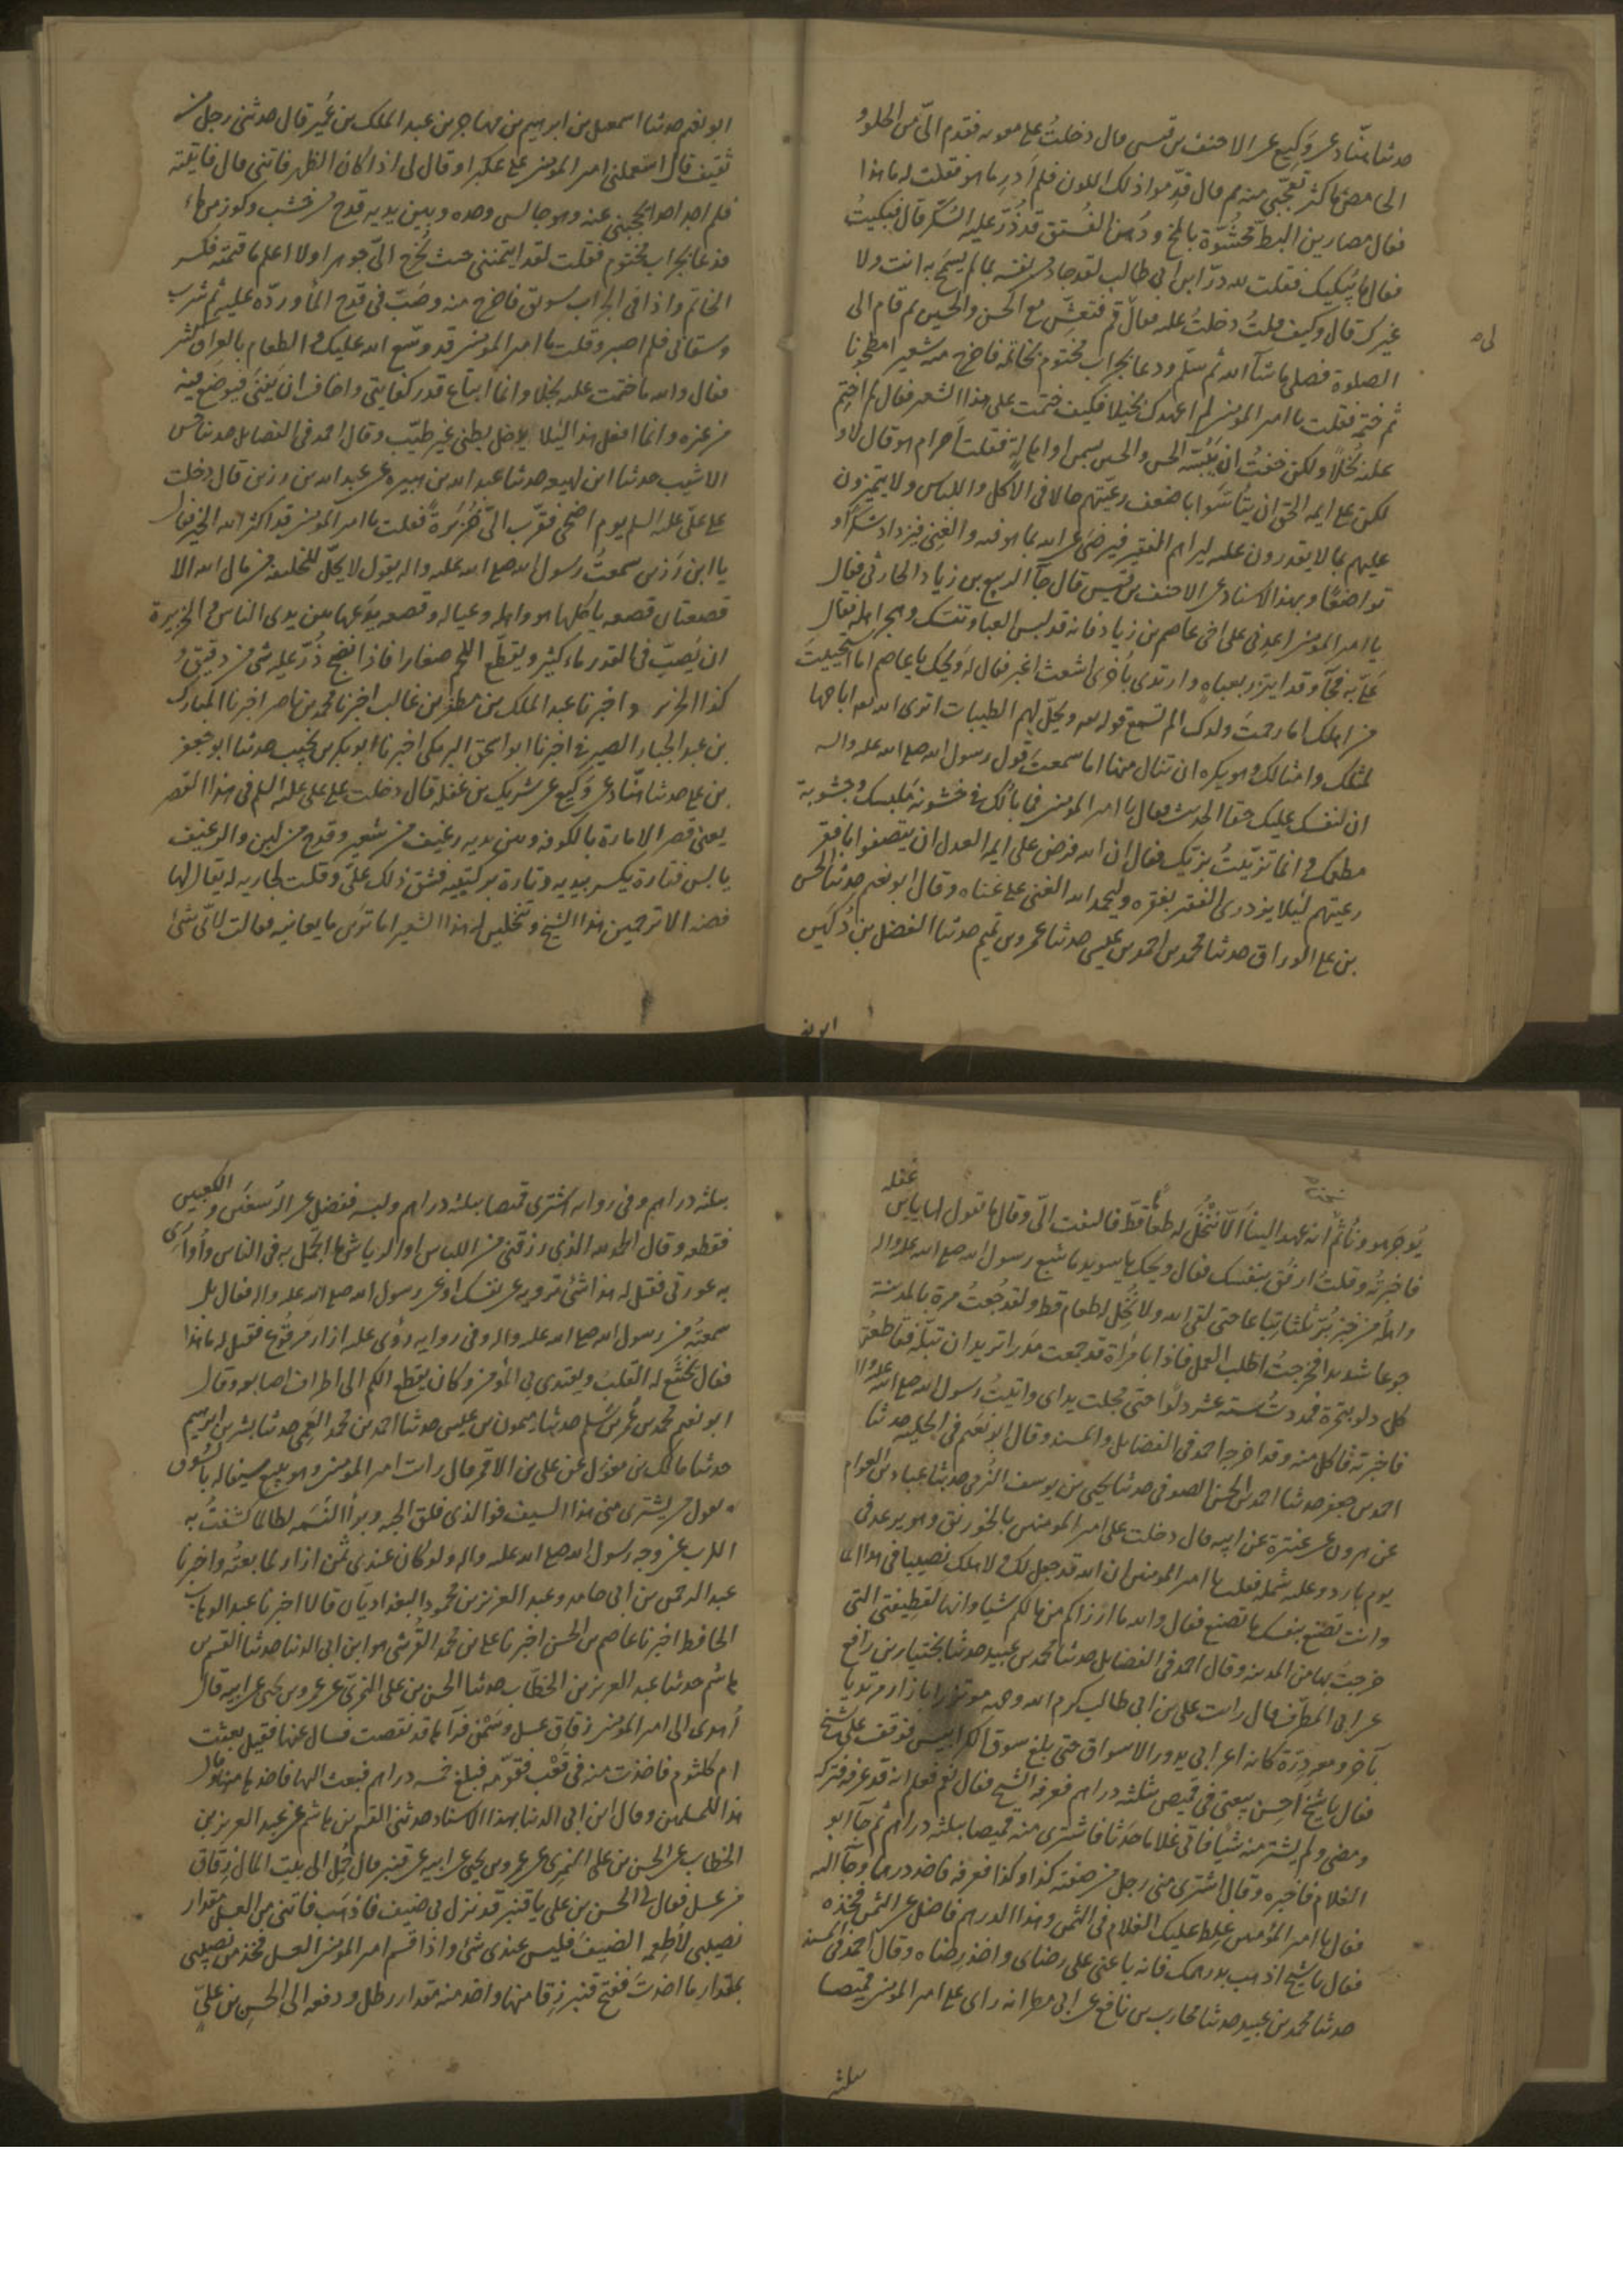 حدثنا هنّاد عن وكيع عن الاحنف بن قيس قال دخلتُ على معويه فقدم الىّ من الحلو و
الحامض ما كثر تعجّبى منه ثم قال قدّموا ذلك اللون فلم اَدرِ ما هو فقلت له ما هذا
فقال مصارين البطّ محشُوّة بالمخ ودُهن الفُستق قد ذُرّ عليه السُكّر قال فبكيتُ
فقال ما يُبكيك فقلت لله درّ ابن ابى طالب لقد جاد من نفسه بما لم يسمح به انت ولا
غيرك قال وكيف قلتُ دخلتُ عليه فقال قم فتعشّ مع الحسن والحسين ثم قام الى
الصلوة فصلى ما شآ الله ثم سلّم ودعا بجراب مختوم بخاتمه فاخرج منه شعيرا مطحونا
ثم ختمه فقلت يا امير المومنين لم اعهدك بخيلا فكيف ختمت على هذا الشعير فقال لم اختم
عليه بُخلاً ولكن خفتُ ان يَبُسّه الحسن والحسين بسمن او اهالةٍ فقلت اَحرام هو قال لا و
لكن على ايمه الحق ان يتُاسّوا باضعف رعيّتهم حالا فى الاكل واللباس ولا يتميّزون
عليهم بما لا يقدرون عليه ليراهم الفقير فيرضى عن الله بما هو فيه والغنِى فيزداد شكرًا و
تواضعًا وبهذا الاسناد عن الاحنف بن قيس قال جآ الربيع بن زياد الحارثى فقال
يا امير المومنين اعدِنى على اخى عاصم بن زياد فانه قد لبس العبا وتنسّك وهجر اهله فقال
عَلَىّ به فجآ وقد ايتزر بعباه وارتدى باُخرى اشعث اغبر فقال له وَيحك يا عاصم اما استحييتَ
من اهلك اما رحمتَ ولدك الم تسمع قوله تعه ويحلّ لهم الطيبات اترى الله تعه اباحها
لمثلك وامثالك وهو يكره ان تنال منها اما سمعتَ قول رسول الله صلى الله عليه واله
ان لنفسك عليك حقا الحديث فقال يا امير المومنين فما بالك فى خشونة ملبسك وجشوبة
مطعمك وانما تزيّيتُ بزيّك فقال ان الله فرض على ايمه العدل ان يتصفوا بافقر
رعيتهم لئلا يزدرى الفقير بفقره وليحمد الله الغنى على غناه وقال ابو نعيم حدثنا الحسن
بن على الوراق حدثنا محمد بن احمد بن عيسى حدثنا عمرو بن تميم حدثنا الفضل بن دُكَين
ابو نعيم حدثنا اسمعيل بن ابرهيم بن مهاجر بن عبد الملك بن عُمير قال حدثنى رجل من
ثقيف قال استعملنى امير المومنين على عكبرا وقال لى اذا كان الظهر فاتنى قال فاتيته
فلم اجد احدا يحجبنى عنه وهو جالس وحده وبين يديه قدح من خشب وكوز من ماء
فدعا بجراب مختوم فقلت لقد ايتمننى حيث يُخرج الىّ جوهرا ولا اعلم ما قيمته فكسر
الخاتم واذا فى الجراب سويق فاخرج منه وصَبّ فى قدح المآ وردّه عليه ثم شرب
وسقانى فلم اصبر وقلت يا امير المومنين قد وسّع الله عليك والطعام بالعراق كثير
فقال والله ما ختمت عليه بُخلا وانما ابتاع قدر كفايتى واخاف ان يَفنىَ فيوضع فيه
من غيره وانما افعل هذا ليَلا يدخل بطنى غير طيّب وقال احمد فى الفضايل حدثنا حسن
الاشيب حدثنا ابن لهيعه حدثنا عبد الله بن هبيره عن عبد الله بن رزين قال دخلت
على علىّ عليه السلم يوم اضحى فقرّب الىّ خزيرةً فقلت يا امير المومنين قد اكثر الله الخير فقال
يا ابن رَزين سمعتُ رسول الله صلى الله عليه واله يقول لا يحلّ للخليفه من مال الله الا
قصعتان قصعه ياكلها هو واهله وعياله وقصعه يضعها بين يدى الناس والخزيرة
ان يَصبّ فى القدر ماء كثير ويقطّع اللحم صغارا فاذا نضج ذُرّ عليه شى من دقيق و
كذا الخزير واخبرنا عبد الملك بن مظفر بن غالب اخبرنا محمد بن ناصر اخبرنا المبارك
بن عبد الجبار الصيرفى اخبرنا ابو اسحق البرمكى اخبرنا ابو بكر بن نجيب حدثنا ابو جعفر
بن على حدثنا هنّاد عن وكيع عن شريك بن غفله قال دخلت على على عليه السلم فى هذا القصر
يعنى قصر الاماره بالكوفه وبين يديه رغيف من شعير وقدح من لبن والرغيف
يابس فتارة يكسره بيديه وتارة بركبتيه فشق ذلك علىّ وقلت لجاريه له يقال لها
فضه الا ترحمين هذا الشيخ وتنخلين له هذا الشعير اما ترين ما يعانيه فقالت لاىّ شئ
ابو نع
يُوجَر هو ونُاثم انه عهد الينا اَلاّ ننخُل له طعاما قطّ فالتفت الىّ وقال ما تقول لها يا بن
غفله
فاخبرتُه وقلت ارفق بنفسك فقال ويحك يا سويد ما شبع رسول الله صلى الله عليه واله
واهلُه من خبز بُرّ ثلثا تِباعا حتى لقى الله ولا نُخِل له طعام قط ولقد جُعتُ مرة بالمدينة
جوعا شديدا فخرجتُ اطلب العمل فاذا بامراة قد جمعت مَدَرا تريد ان تبلّه فقاطعتُها
كل دلو بتمرة فمددتُ ستة عشر دلوًا حتى مجلت يداى واتيتُ رسول الله صلى الله عليه واله
فاخبرته فاكل منه وقد اخرجه احمد فى الفضايل والمسند وقال ابو نعيم فى الحليه حدثنا
احمد بن جعفر حدثنا احمد بن الحسن الصوفى حدثنا يحيى بن يوسف الزمى حدثنا عباد بن العوام
عن هرون بن عنترة عن ابيه قال دخلت على امير المومنين بالخورنق وهو يرعد فى
يوم بارد وعليه شمله فقلت يا امير المومنين ان الله قد جعل لك ولاهلك نصيبا فى هذا المال
وانت تصنع بنفسك ما تصنع فقال والله ما ارزاكم من مالكم شيا وانها لقطيفتى التى
خرجتُ بها من المدينه وقال احمد فى الفضايل حدثنا محمد بن عبيد حدثنا بختيار بن رافع
عن ابى المطرّف قال رايت على بن ابى طالب كرم الله وجهه موتزرا بازار مرتديا
بآخر ومعه دِرّة كانه اعرابى يدور الاسواق حتى بلغ سوق الكرابيس فوقف على شيخ
فقال يا شيخ احسِن بيعتى فى قميص بثلثه دراهم فعرفه الشيخ فقال نعم فعلم انه قد عرفه فتركه
ومضى ولم يشتر منه شيا فاتى غلاما حدَثا فاشترى منه قميصا بثلثه دراهم ثم جآ ابو
الغلام فاخبره وقال اشترى منى رجل من صفته كذا وكذا فعرفه فاخذ درهما وجآ اليه
فقال يا امير المؤمنين غلِط عليك الغلام فى الثمن وهذا الدرهم فاضل عن الثمن فخذه
فقال يا شيخ اذهب بدرهمك فانه باعنى على رضاى واخذ رضاه وقال احمد فى المسند
حدثنا محمد بن عبيد حدثنا محارب بن نافع عن ابى مطر انه راى على امير المومنين قميصا
بثلثه دراهم وفى رواية اشترى قميصا بثلثه دراهم ولبسه ففضل عن الرسغين و الكعبين
فقطعه وقال الحمد لله الذى رزقنى من اللباس او الرياش ما اتجمّل به فى الناس واُوارى
به عورتى فقيل له هذا شئ ترويه عن نفسك او عن رسول الله صلى الله عليه واله فقال بل
سمعتُه من رسول الله صلى الله عليه واله وفى روايه رُؤى عليه ازار مَرقوع فقيل له ما هذا
فقال يخشع له القلب ويقتدى بى المؤمن وكان يقطع الكم الى اطراف اصابعه وقال
ابو نعيم محمد بن عُمر بن سَلم حدثنا ميمون بن عيسى حدثنا احمد بن محمد العَمى حدثنا بشر بن ابرهيم
حدثنا مالك بن مغول عن على بن الاقمر قال رايت امير المومنين وهو يبيع سيفا له بالسُوق
ويقول من يشترى منى هذا السيف فوالذى فلق الحبه وبرأ النَسَمه لطالما كشفتُ به
الكرب عن وجه رسول الله صلى الله عليه واله ولو كان عندى ثمن ازار لما بعتُه واخبرنا
عبد الرحمن بن ابى حامد وعبد العزيز بن محمود البغداديان قالا اخبرنا عبد الوهاب
الحافظ اخبرنا عاصم بن الحسن اخبرنا على بن محمد القرشى هو ابن ابى الدنيا حدثنا القسم بن
هاشم حدثنا عبد العزيز بن الخطّاب حدثنا الحسن بن على النمرىّ عن عمرو بن يحيى عن ابيه قال
اُهدى الى امير المومنين زقاق عسل وسَمْن فرآها قد نقصت فسال عنها فقيل بعثت
ام كلثوم فاخذت منه فى قَعْب فقوّمه فبلغ خمسه دراهم فبعث اليها فاخذها منها وقال
هذا للمسلمين وقال ابن ابى الدنيا بهذا الاسناد حدثنى القسم بن هاشم عن عبد العزيز بن
الخطاب عن الحسن بن على النمرى عن عمرو بن يحيى عن ابيه عن قنبر قال حُمل الى بيت المال زقاق
من عسل فقال لى الحسن بن على يا قنبر قد نزل بى ضيف فاذهَب فاتنى من العسل مقدار
نصيبى لاُطعِم الضيفَ فليس عندى شئ واذا قسم امير المومنين العسل فخذ من نصيبى
بمقدار ما اخذتَ ففتح قنبر زِقا منها واخذ منه مقدار رطل ودفعه الى الحسن بن علىّ
بثلثه